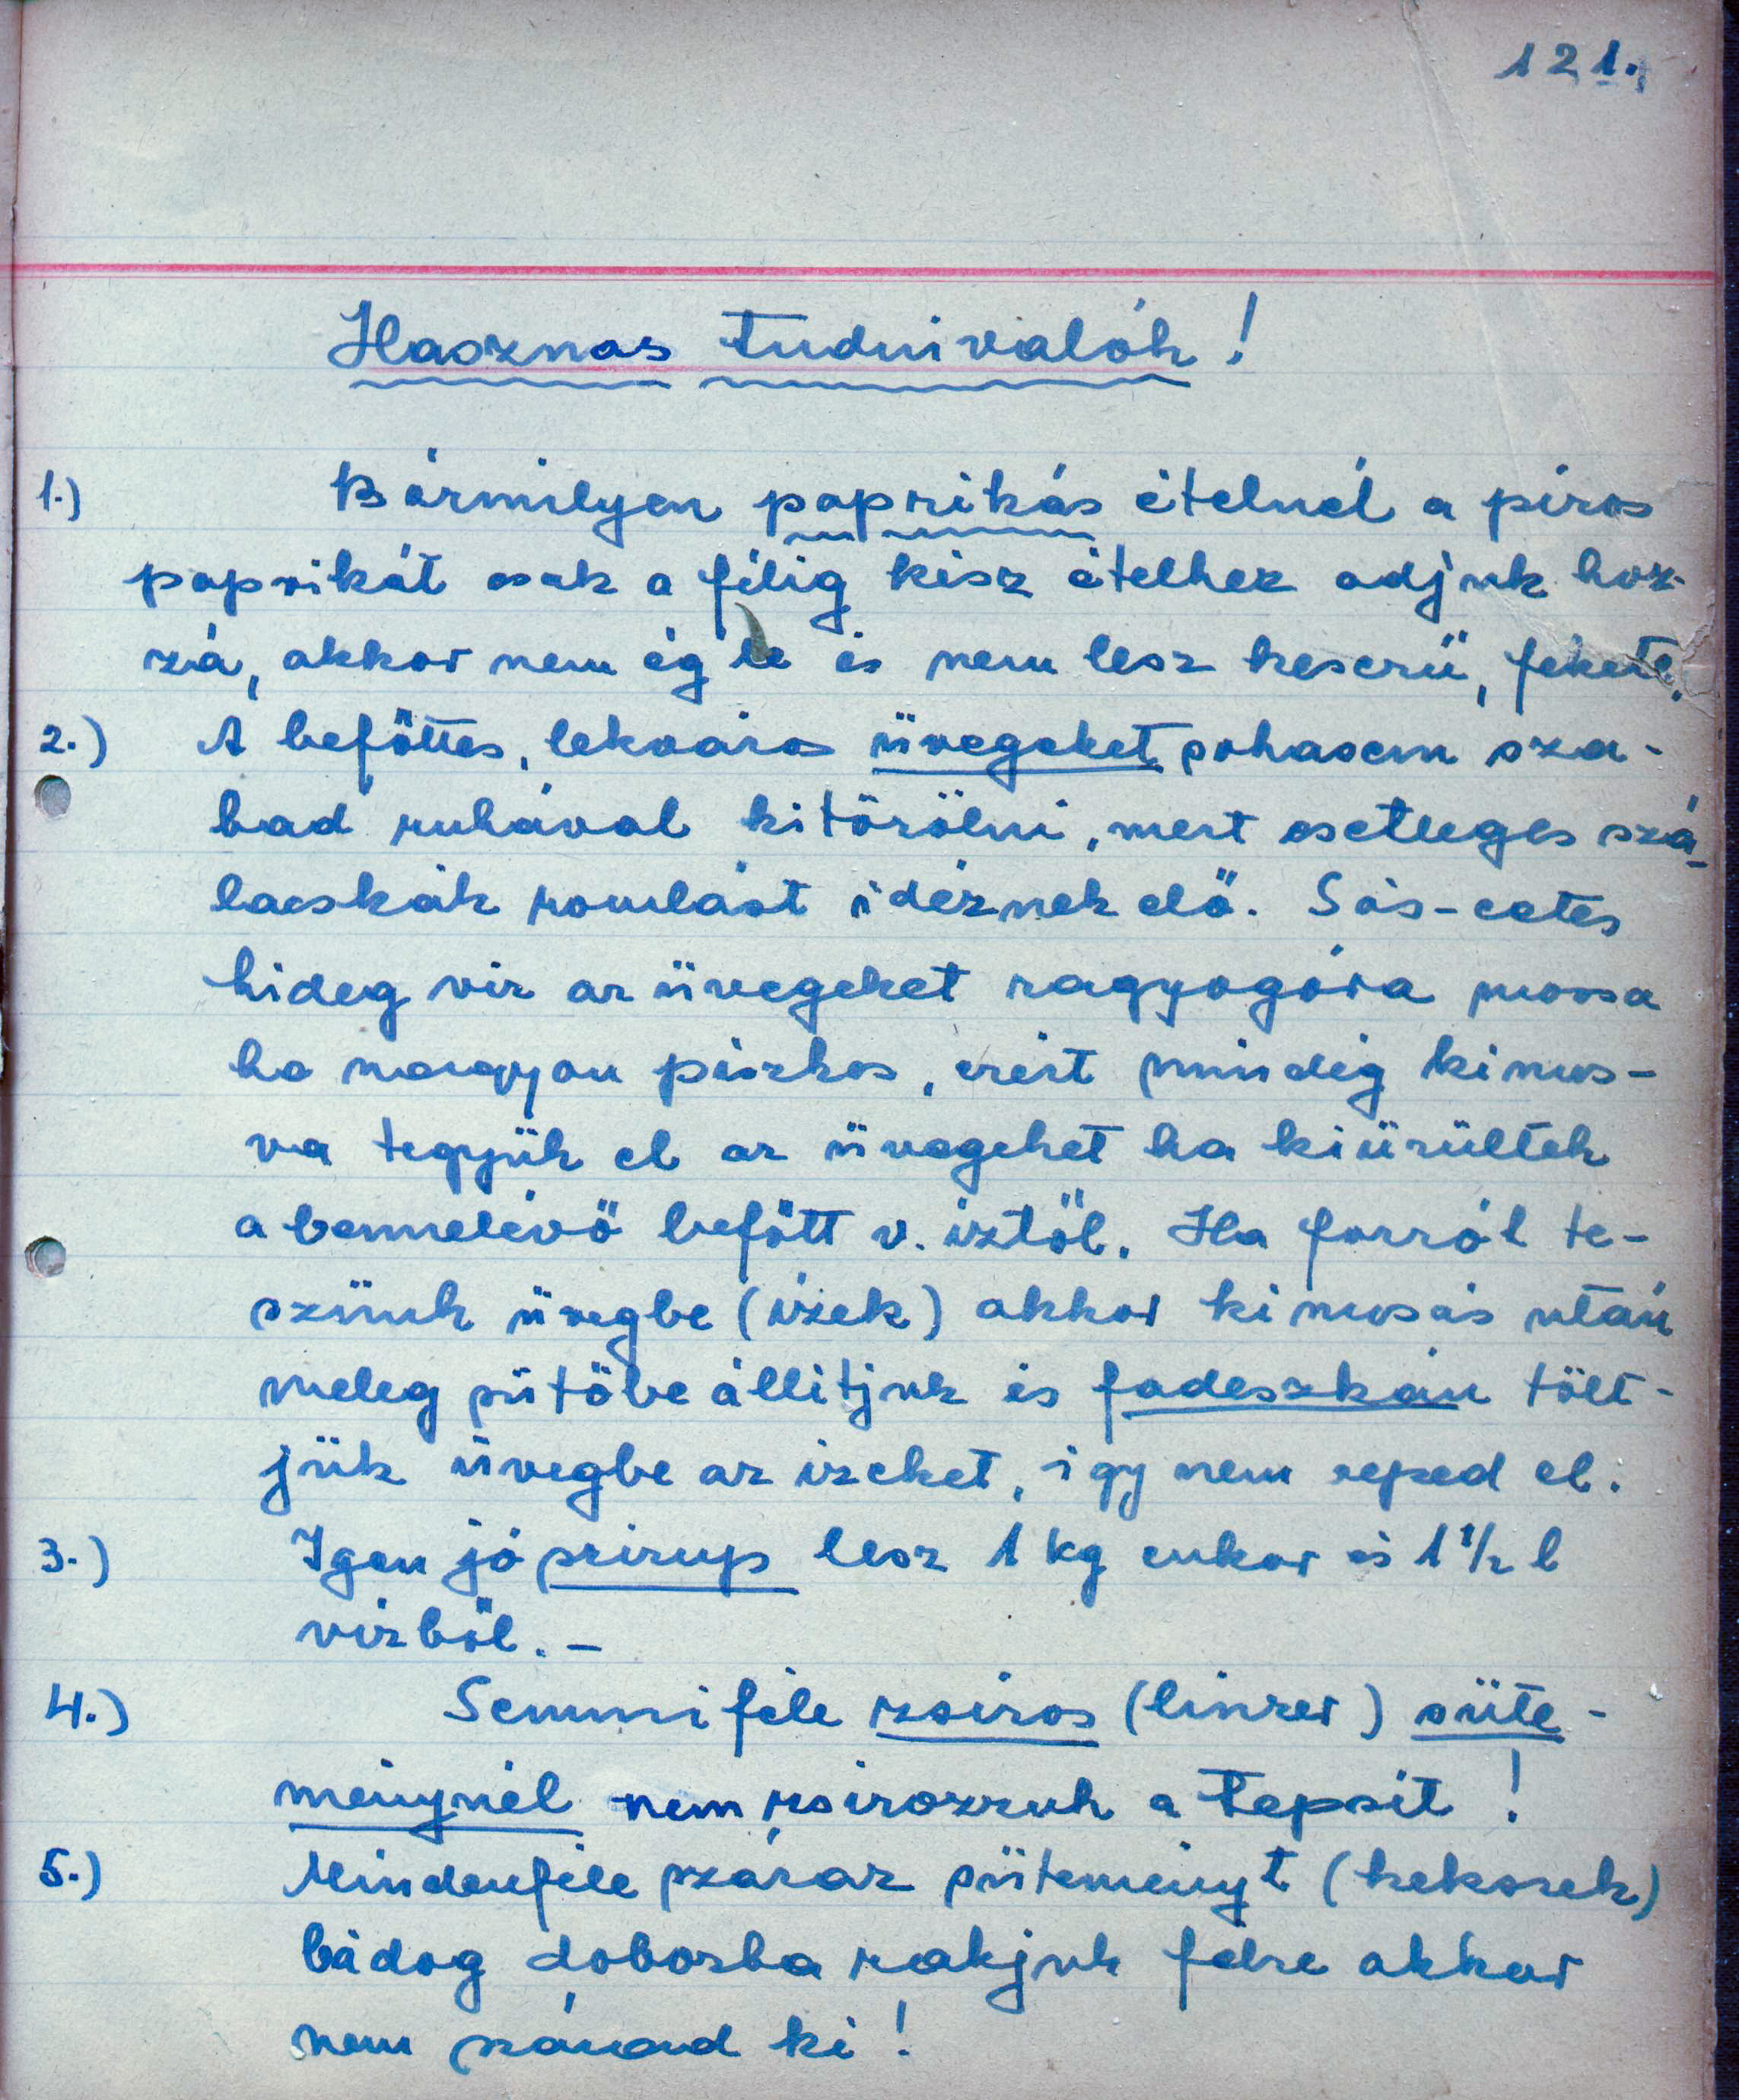 121.
Hasznos tudnivalók!
1.) Bármilyen paprikás ételnél a piros
paprikát csak a félig kész ételhez adjuk hoz-
zá, akkor nem ég le és nem lesz keserü, fekete.
2.) A befőttes, lekváros üvegeket sohasem sza-
bad ruhával kitörölni, mert esetleges szá-
lacskák romlást idéznek elő. Sós-ecetes
hideg víz az üvegeket ragyogóra mossa
ha nagyon piszkos, ezért mindég kimos-
va tegyük el az üvegeket ha kiürültek
a bennelévő befőtt v. íztől. Ha forról te-
szünk üvegbe (ízek) akkor kimosás után
meleg sütőbe állitjuk és fadeszkán tölt-
jük üvegbe az izeket, igy nem reped el.
3.) Igen jó szirup lesz 1 kg cukor és 1 1/2 l
vízből. –
4.) Semmiféle zsíros (linzer) süte-
ménynél nem zsirozzuk a tepsit!
5.) Mindenféle száraz süteményt (kekszek)
bádog dobozba rakjuk felre akkor
nem szárad ki!